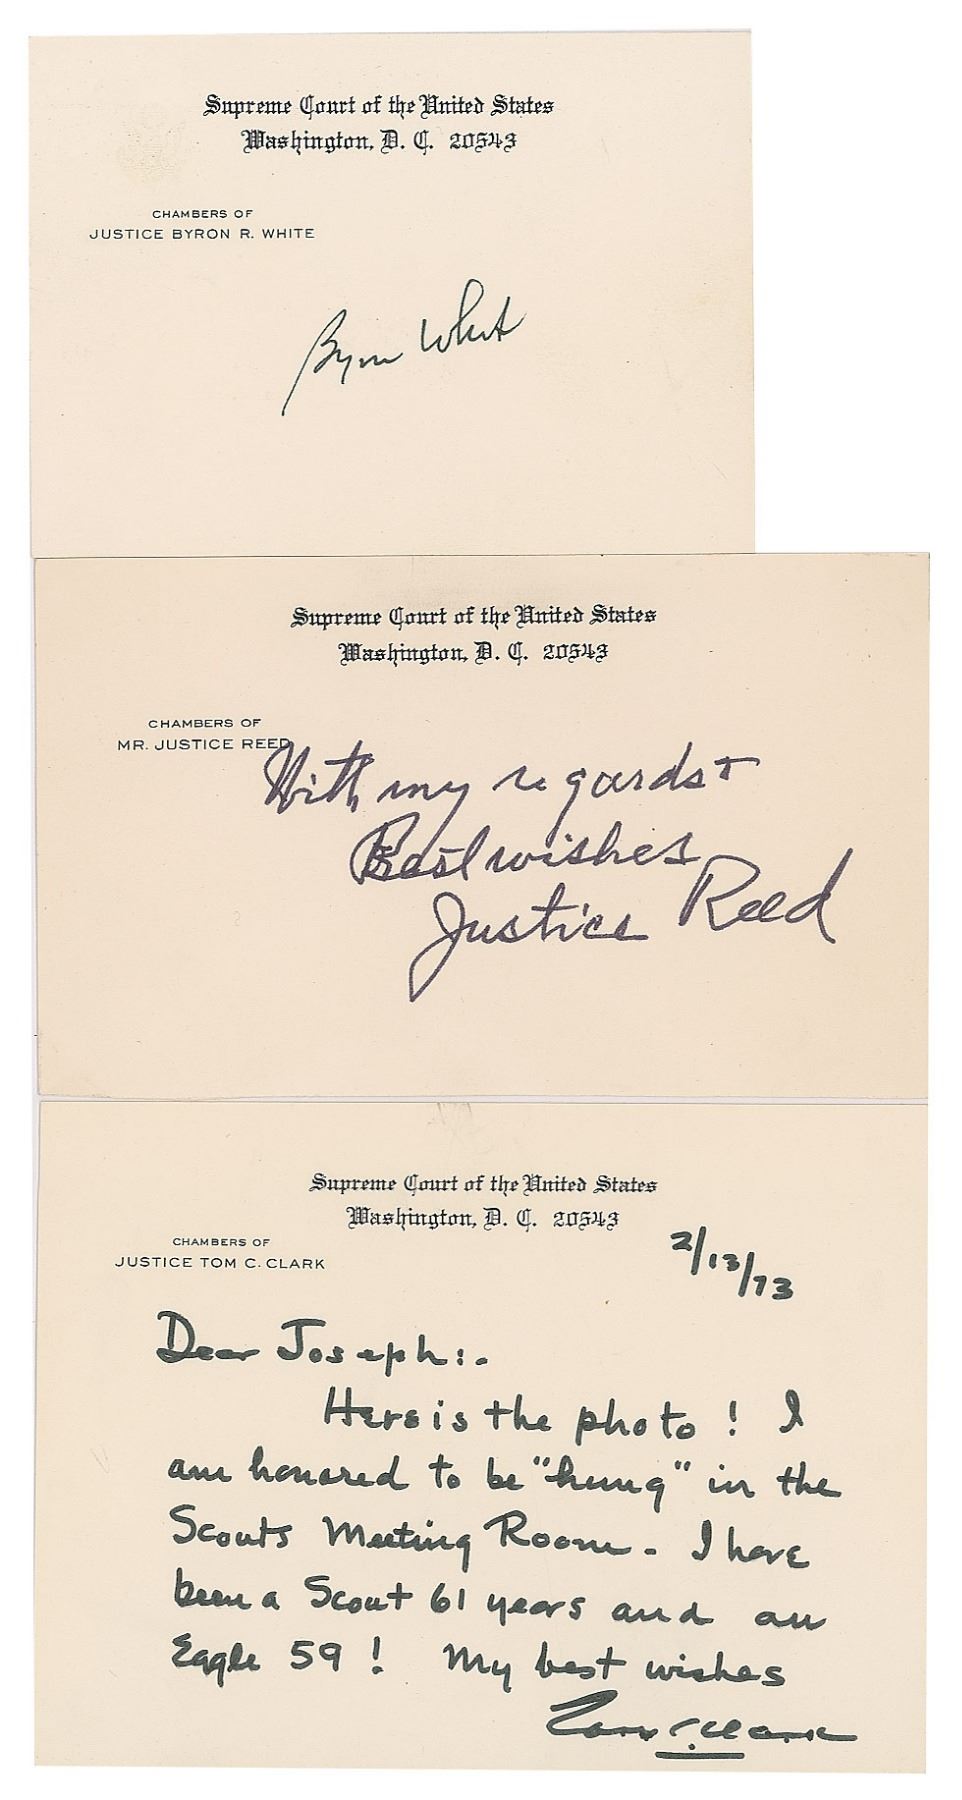 Supreme Court of the United States
Washington, D. C. 20543
CHAMBERS OF
JUSTICE BYRON R. WHITE
Byron White
Supreme Court of the United States
Washington, D. C. 20543
CHAMBERS OF
MR. JUSTICE REED
With my regards +
Best wishes
Justice Reed
Supreme Court of the United States
Washington, D. C. 20543
CHAMBERS OF
JUSTICE TOM C. CLARK
2/13/73
Dear Joseph:-
Here is the photo! I
am honored to be "hung" in the
Scouts Meeting Room - I have
been a Scout 61 years and an
Eagle 59! My best wishes
Tom C. Clark